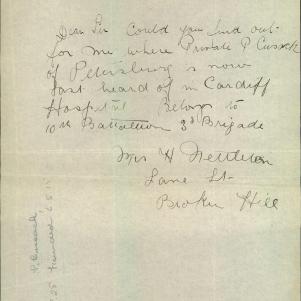 Dear Sir Could you find out
for me where Private P Cusack
of Petersburg is now
last heard of in Cardiff
Hospital Belongs to
10th Battallion 3rd Brigade
Mrs H Nettleton
Lane St
Broken Hill
P. Cusack
wounded